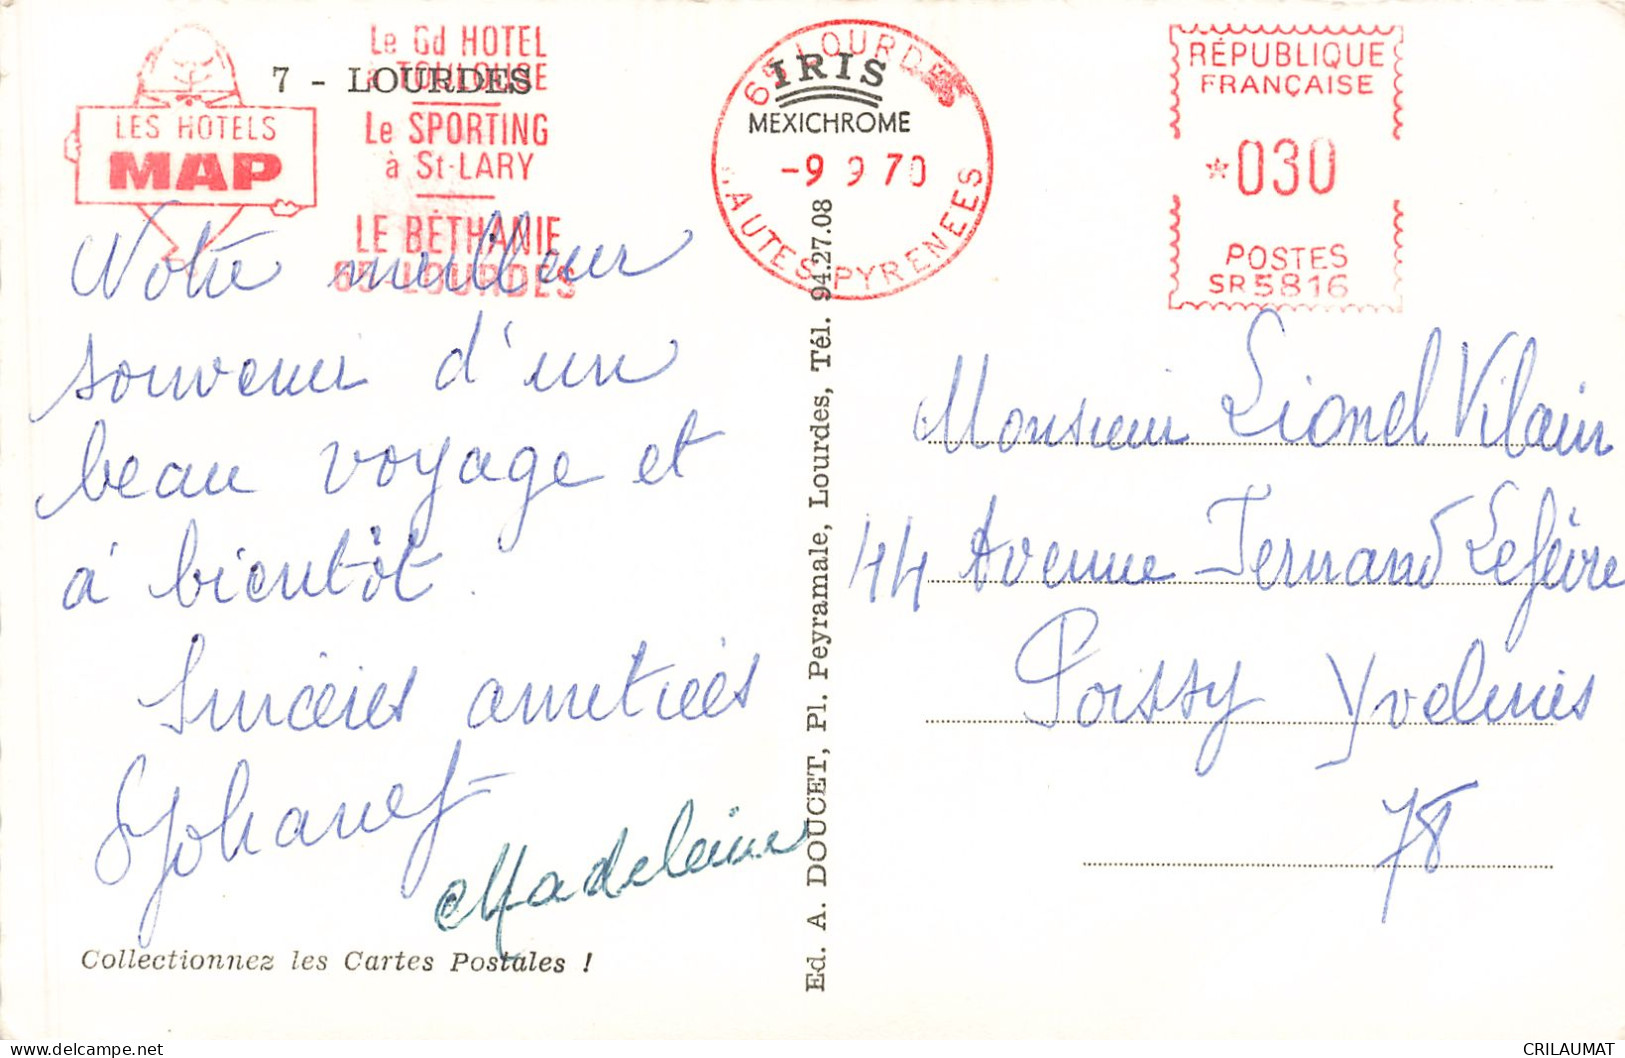 7 - LOURDES
LES HOTELS
MAP
Le Gd HOTEL
à TOULOUSE
Le SPORTING
à St-LARY
LE BÉTHANIE
65-LOURDES
65 LOURDES
-9 9 70
HAUTES PYRENEES
IRIS
MEXICHROME
RÉPUBLIQUE
FRANÇAISE
*030
POSTES
SR 5816
Notre meilleur
souvenir d'un
beau voyage et
à bientôt.
Sincères amitiées
Madeleine
Collectionnez les Cartes Postales !
Ed. A. DOUCET, Pl. Peyramale, Lourdes, Tél. 94.27.08
Monsieur Lionel Vilain
44 Avenue Fernand Lefèvre
Poissy Yvelines
78
delcampe.net
CRILAUMAT